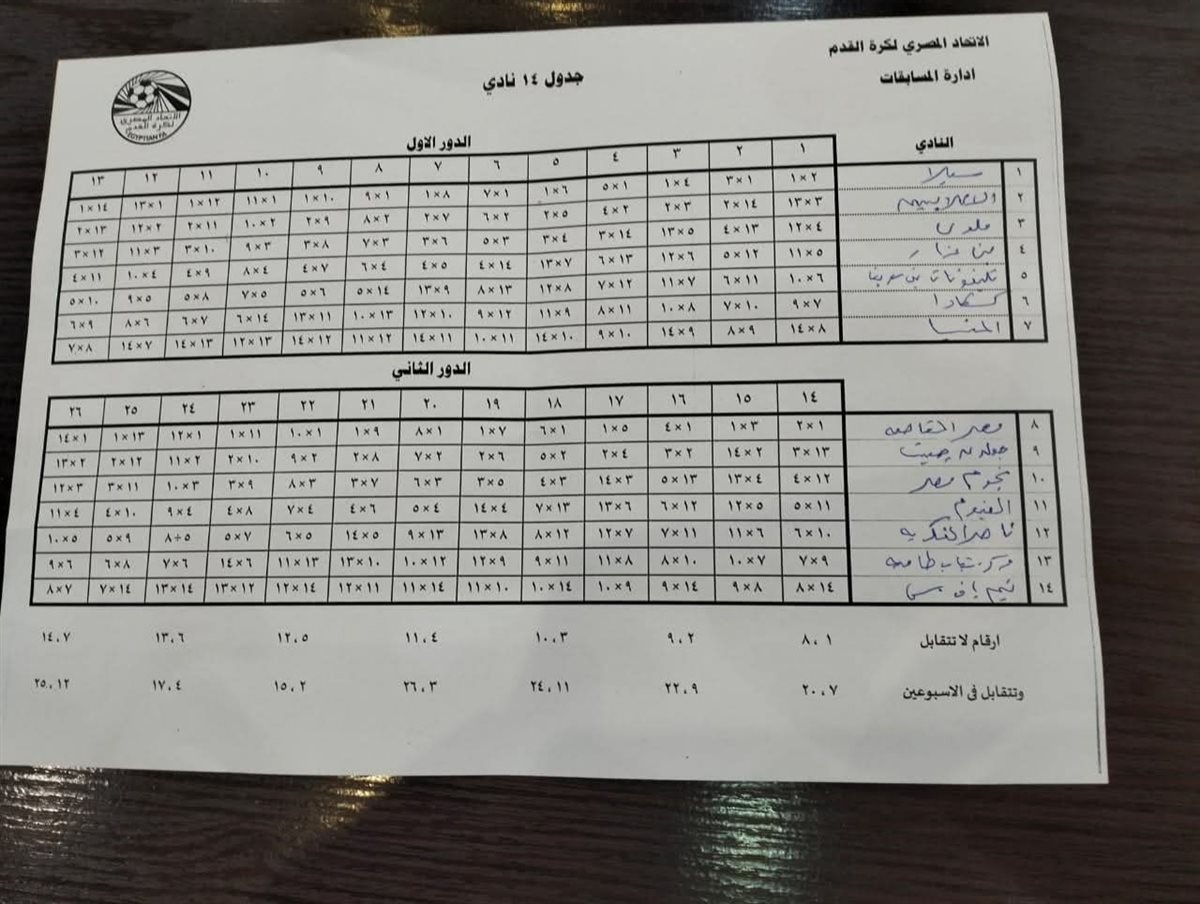 الاتحاد المصري لكرة القدم
ادارة المسابقات
جدول ١٤ نادي
الاتحاد المصرى
لكرة القدم
EGYPTIAN FA
النادي
الدور الاول
١ ٢ ٣ ٤ ٥ ٦ ٧ ٨ ٩ ١٠ ١١ ١٢ ١٣
١ سيلا ١×٢ ٣×١ ١×٤ ٥×١ ١×٦ ٧×١ ١×٨ ٩×١ ١×١٠ ١١×١ ١×١٢ ١٣×١ ١×١٤
٢ ١٣×٣ ٢×١٤ ٢×٣ ٤×٢ ٢×٥ ٦×٢ ٢×٧ ٨×٢ ٢×٩ ١٠×٢ ٢×١١ ١٢×٢ ٢×١٣
٣ ملوى ١٢×٤ ٤×١٣ ١٣×٥ ٣×١٤ ٣×٤ ٥×٣ ٣×٦ ٧×٣ ٣×٨ ٩×٣ ٣×١٠ ١١×٣ ٣×١٢
٤ بنى مزار ١١×٥ ٥×١٢ ١٢×٦ ٦×١٣ ١٣×٧ ٤×١٤ ٤×٥ ٦×٤ ٤×٧ ٨×٤ ٤×٩ ١٠×٤ ٤×١١
٥ تليفونات بنى سويف ١٠×٦ ٦×١١ ١١×٧ ٧×١٢ ١٢×٨ ٨×١٣ ١٣×٩ ٥×١٤ ٥×٦ ٧×٥ ٥×٨ ٩×٥ ٥×١٠
٦ ٩×٧ ٧×١٠ ١٠×٨ ٨×١١ ١١×٩ ٩×١٢ ١٢×١٠ ١٠×١٣ ١٣×١١ ٦×١٤ ٦×٧ ٨×٦ ٦×٩
٧ المنيا ١٤×٨ ٨×٩ ١٤×٩ ٩×١٠ ١٤×١٠ ١٠×١١ ١٤×١١ ١١×١٢ ١٤×١٢ ١٢×١٣ ١٤×١٣ ١٤×٧ ٧×٨
الدور الثاني
١٤ ١٥ ١٦ ١٧ ١٨ ١٩ ٢٠ ٢١ ٢٢ ٢٣ ٢٤ ٢٥ ٢٦
٨ مصر المقاصه ٢×١ ١×٣ ٤×١ ١×٥ ٦×١ ١×٧ ٨×١ ١×٩ ١٠×١ ١×١١ ١٢×١ ١×١٣ ١٤×١
٩ ٣×١٣ ١٤×٢ ٣×٢ ٢×٤ ٥×٢ ٢×٦ ٧×٢ ٢×٨ ٩×٢ ٢×١٠ ١١×٢ ٢×١٢ ١٣×٢
١٠ نجوم مصر ٤×١٢ ١٣×٤ ٥×١٣ ١٤×٣ ٤×٣ ٣×٥ ٦×٣ ٣×٧ ٨×٣ ٣×٩ ١٠×٣ ٣×١١ ١٢×٣
١١ الفيوم ٥×١١ ١٢×٥ ٦×١٢ ١٣×٦ ٧×١٣ ١٤×٤ ٥×٤ ٤×٦ ٧×٤ ٤×٨ ٩×٤ ٤×١٠ ١١×٤
١٢ ٦×١٠ ١١×٦ ٧×١١ ١٢×٧ ٨×١٢ ١٣×٨ ٩×١٣ ١٤×٥ ٦×٥ ٥×٧ ٨÷٥ ٥×٩ ١٠×٥
١٣ مركز شباب طاميه ٧×٩ ١٠×٧ ٨×١٠ ١١×٨ ٩×١١ ١٢×٩ ١٠×١٢ ١٣×١٠ ١١×١٣ ١٤×٦ ٧×٦ ٦×٨ ٩×٦
١٤ ٨×١٤ ٩×٨ ٩×١٤ ١٠×٩ ١٠×١٤ ١١×١٠ ١١×١٤ ١٢×١١ ١٢×١٤ ١٣×١٢ ١٣×١٤ ٧×١٤ ٨×٧
ارقام لا تتقابل ٨،١ ٩،٢ ١٠،٣ ١١،٤ ١٢،٥ ١٣،٦ ١٤،٧
وتتقابل فى الاسبوعين ٢٠،٧ ٢٢،٩ ٢٤،١١ ٢٦،٣ ١٥،٢ ١٧،٤ ٢٥،١٢